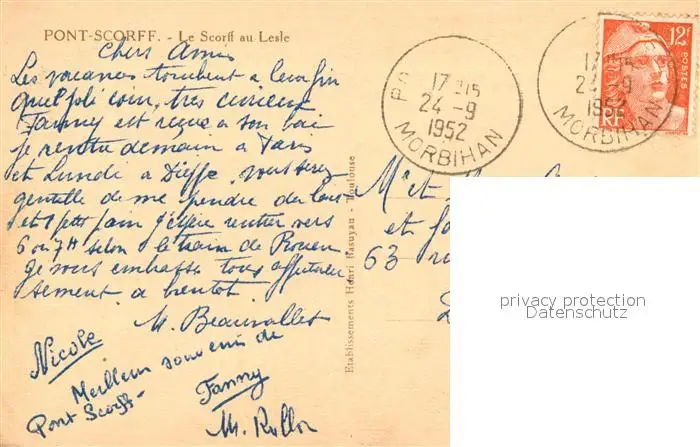 PONT-SCORFF. - Le Scorff au Lesle
Chers Amis
Les vacances touchent a leur fin
quel joli coin, très curieux
Fanny est reçue a son bac
je rentre demain a Paris
et Lundi a Dieppe, vous serez
gentille de me prendre du lait
et 1 petit pain j'espère rentrer vers
6 ou 7H selon le train de Rouen
Je vous embrasse tous affectueu
sement a bientot.
M. Beauvallet
Nicole
Meilleur souvenir de
Pont Scorff-
Fanny
M.
Etablissements Henri Basuyau - Toulouse
17H15
24-9
1952
MORBIHAN
17H15
24-9
1952
MORBIHAN
12F
POSTES
RF
Mr et
et
63
privacy protection
Datenschutz